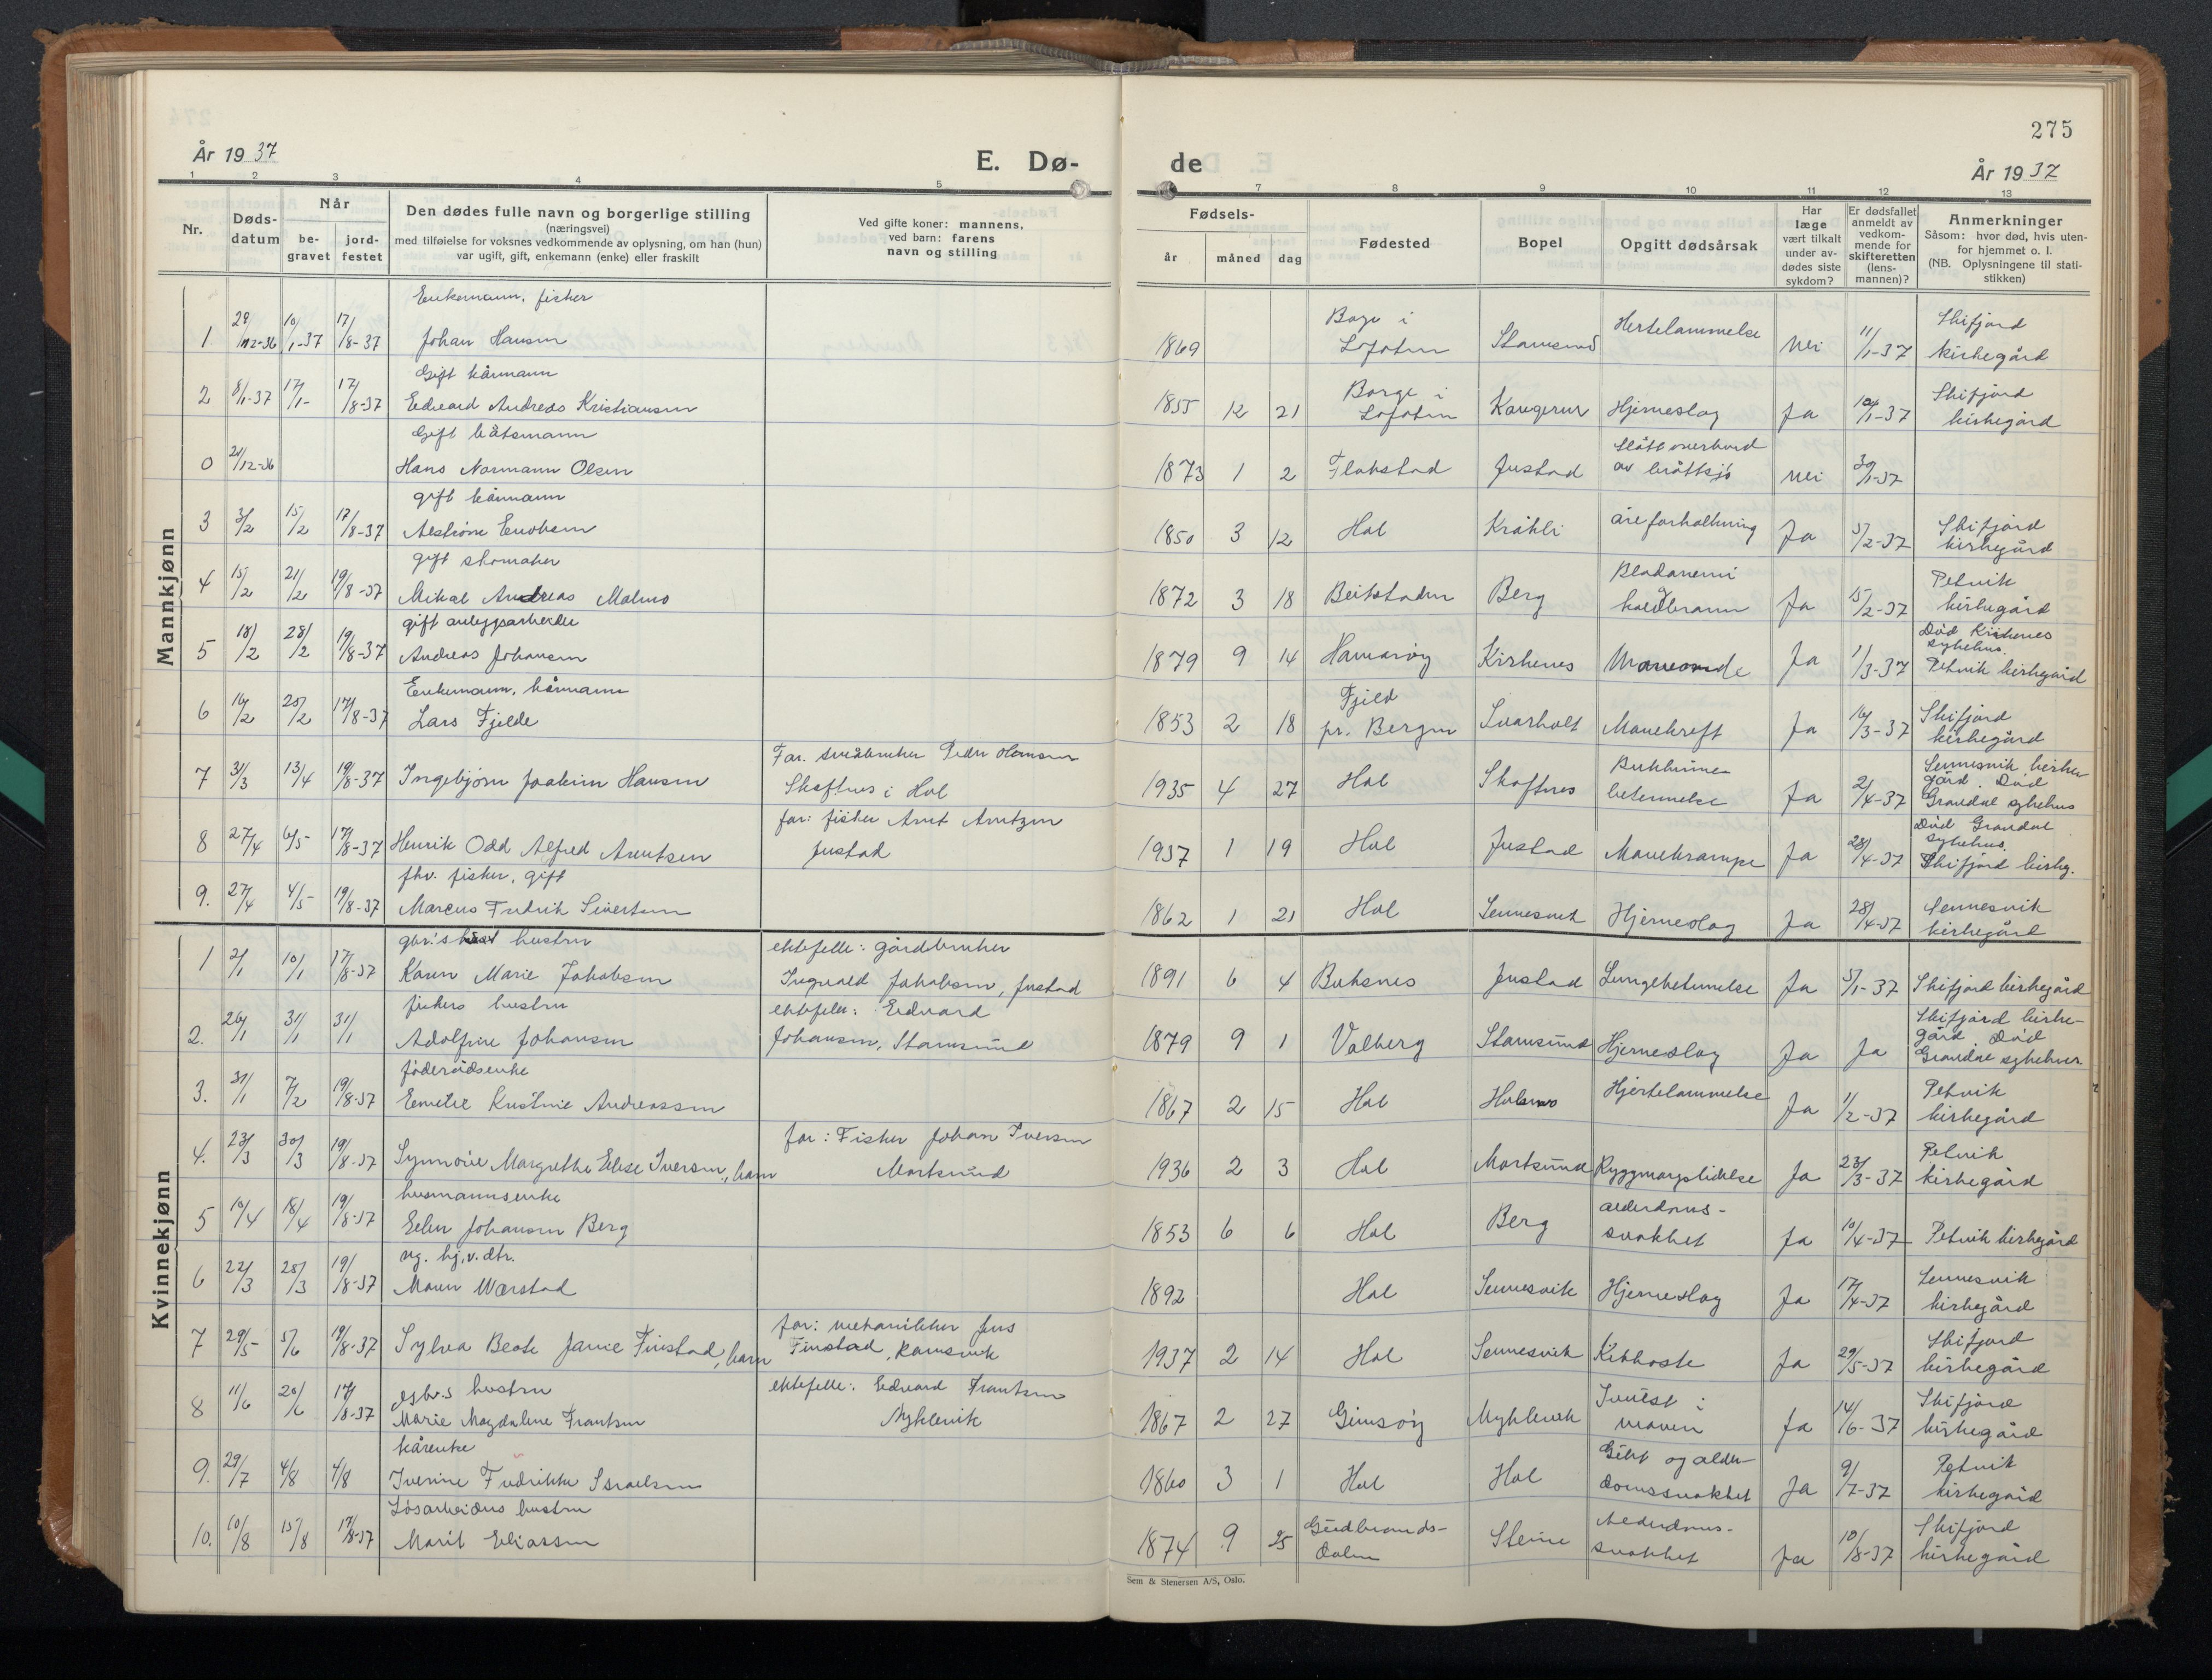 275
År 1937
E. Dø-
de
År 1937
1 2 3 4 5 7 8 9 10 11 12 13
Nr.
Døds-
datum
Når
be-
gravet
jord-
festet
Den dødes fulle navn og borgerlige stilling
(næringsvei)
med tilføielse for voksnes vedkommende av oplysning, om han (hun)
var ugift, gift, enkemann (enke) eller fraskilt
Ved gifte koner: mannens,
ved barn: farens
navn og stilling
Fødsels-
år måned dag
Fødested
Bopel
Opgitt dødsårsak
Har
læge
vært tilkalt
under av-
dødes siste
sykdom?
Er dødsfallet
anmeldt av
vedkom-
mende for
skifteretten
(lens-
mannen)?
Anmerkninger
Såsom: hvor død, hvis uten-
for hjemmet o. l.
(NB. Oplysningene til stati-
stikken)
Mannkjønn
Enkemann, fisker
1 29/12-36 10/1-37 17/8-37 Johan Hansen 1869 Borge i
Lofoten Stamsund Hjertelammelse Nei 11/1-37 Skifjord
kirkegård
Gift kårmann
2 8/1-37 17/1- 17/8-37 Edvard Andreas Kristiansen 1855 12 21 Borge i
Lofoten Kangerur Hjerneslag Ja 12/1-37 Skifjord
kirkegård
Gift båtsmann
0 21/12-36 Hans Normann Olsen 1873 1 2 Flakstad Justad Slått overbord
av bråttsjø Nei 30/1-37
gift kårmann
3 3/2 15/2 17/8-37 Enoksen 1850 3 12 Hol Kråkli åreforkalkning Ja 5/2-37 Skifjord
kirkegård
gift skomaker
4 15/2 21/2 19/8-37 Mikal Andreas Malmo 1872 3 18 Beitstaden Berg Blodanemi
koldbrann Ja 15/2-37 Petvik
kirkegård
gift anleggsarbeider
5 18/2 28/2 19/8-37 Andreas Johansen 1879 9 14 Hamarøy Kirkenes Ja 1/3-37 Død Kirkenes
sykehus.
Petvik kirkegård
Enkemann, kårmann
6 16/2 25/2 17/8-37 Lars Fjelde 1853 2 18 Fjeld
pr. Bergen Svarholt Mavekreft Ja 16/3-37 Skifjord
kirkegård
7 31/3 13/4 19/8-37 Ingebjørn Joakim Hansen Far: småbruker Peder Hansen
Skaftnes i Hol 1935 4 27 Hol Skaftnes Bukhinne
betennelse Ja 2/4-37 Sennesvik kirke
gård. Død
Gravdal sykehus
8 27/4 6/5- 17/8-37 Henrik Odd Alfred Arentsen far: fisker Arnt Arntzen
Justad 1937 1 19 Hol Justad Mavekrampe Ja 28/4-37 Død Gravdal
sykehus.
Skifjord kirkeg.
fhv. fisker, gift
9. 27/4 4/5- 19/8-37 Marcus Fredrik Sivertsen 1862 1 21 Hol Sennesvik Hjerneslag Ja 28/4-37 Sennesvik
kirkegård
Kvinnekjønn
gbr.'s hustru
1 2/1 10/1 17/8-37 Karen Marie Jakobsen ektefelle: gårdbruker
Ingvald Jakobsen, Justad 1891 6 4 Buksnes Justad Lungebetennelse Ja 5/1-37 Skifjord kirkegård
fiskers hustru
2. 26/1 31/1 31/1 Adolfine Johansen ektefelle: Edvard
Johansen, Stamsund 1879 9 1 Valberg Stamsund Hjerneslag Ja Ja Skifjord kirke-
gård. Død
Gravdal sykehus
føderådsenke
3. 31/1 7/2 19/8-37 Emelie Kristine Andreassen 1867 2 15 Hol Holsnes Hjertelammelse Ja 1/2-37 Petvik
kirkegård
4. 23/3 30/3 19/8-37 Synnøve Margrethe Elise Iversen, barn far: Fisker Johan Iversen
Mortsund 1936 2 3 Hol Mortsund Ryggmargslidelse Ja 23/3-37 Petvik
kirkegård
husmannsenke
5 10/4 18/4 19/8-37 Ellen Johansen Berg 1853 6 6 Hol Berg alderdoms-
svakhet Ja 10/4-37 Petvik kirkegård
ug. hj.v. dtr.
6 22/3 28/3 19/8-37 Maren Wærstad 1892 Hol Sennesvik Hjerneslag Ja 17/4-37 Sennesvik
kirkegård
7 29/5- 5/6 19/8-37 Sylva Beate Janie Finstad, barn far: mekaniker Jens
Finstad, Ramsvik 1937 2 14 Hol Sennesvik Kikhoste Ja 29/5-37 Skifjord
kirkegård
gbr.s hustru
8 11/6 20/6 17/8-37 Marie Magdalene Frantsen ektefelle: Edvard Frantsen
Myklevik 1867 2 27 Gimsøy Myklevik i
maven Ja 14/6-37 Skifjord
kirkegård
kårenke
9. 29/7 4/8 4/8 Iverine Fredrikke Israelsen 1860 3 1 Hol Hol Gikt og alder-
domssvakhet Ja 9/7-37 Petvik
kirkegård
Løsarbeiders hustru
10. 10/8 15/8 17/8-37 Marit Eliassen 1874 9 25 Gudbrands-
dalen Steine Alderdoms-
svakhet Ja 10/8-37 Skifjord
kirkegård
Sem & Stenersen A/S, Oslo.